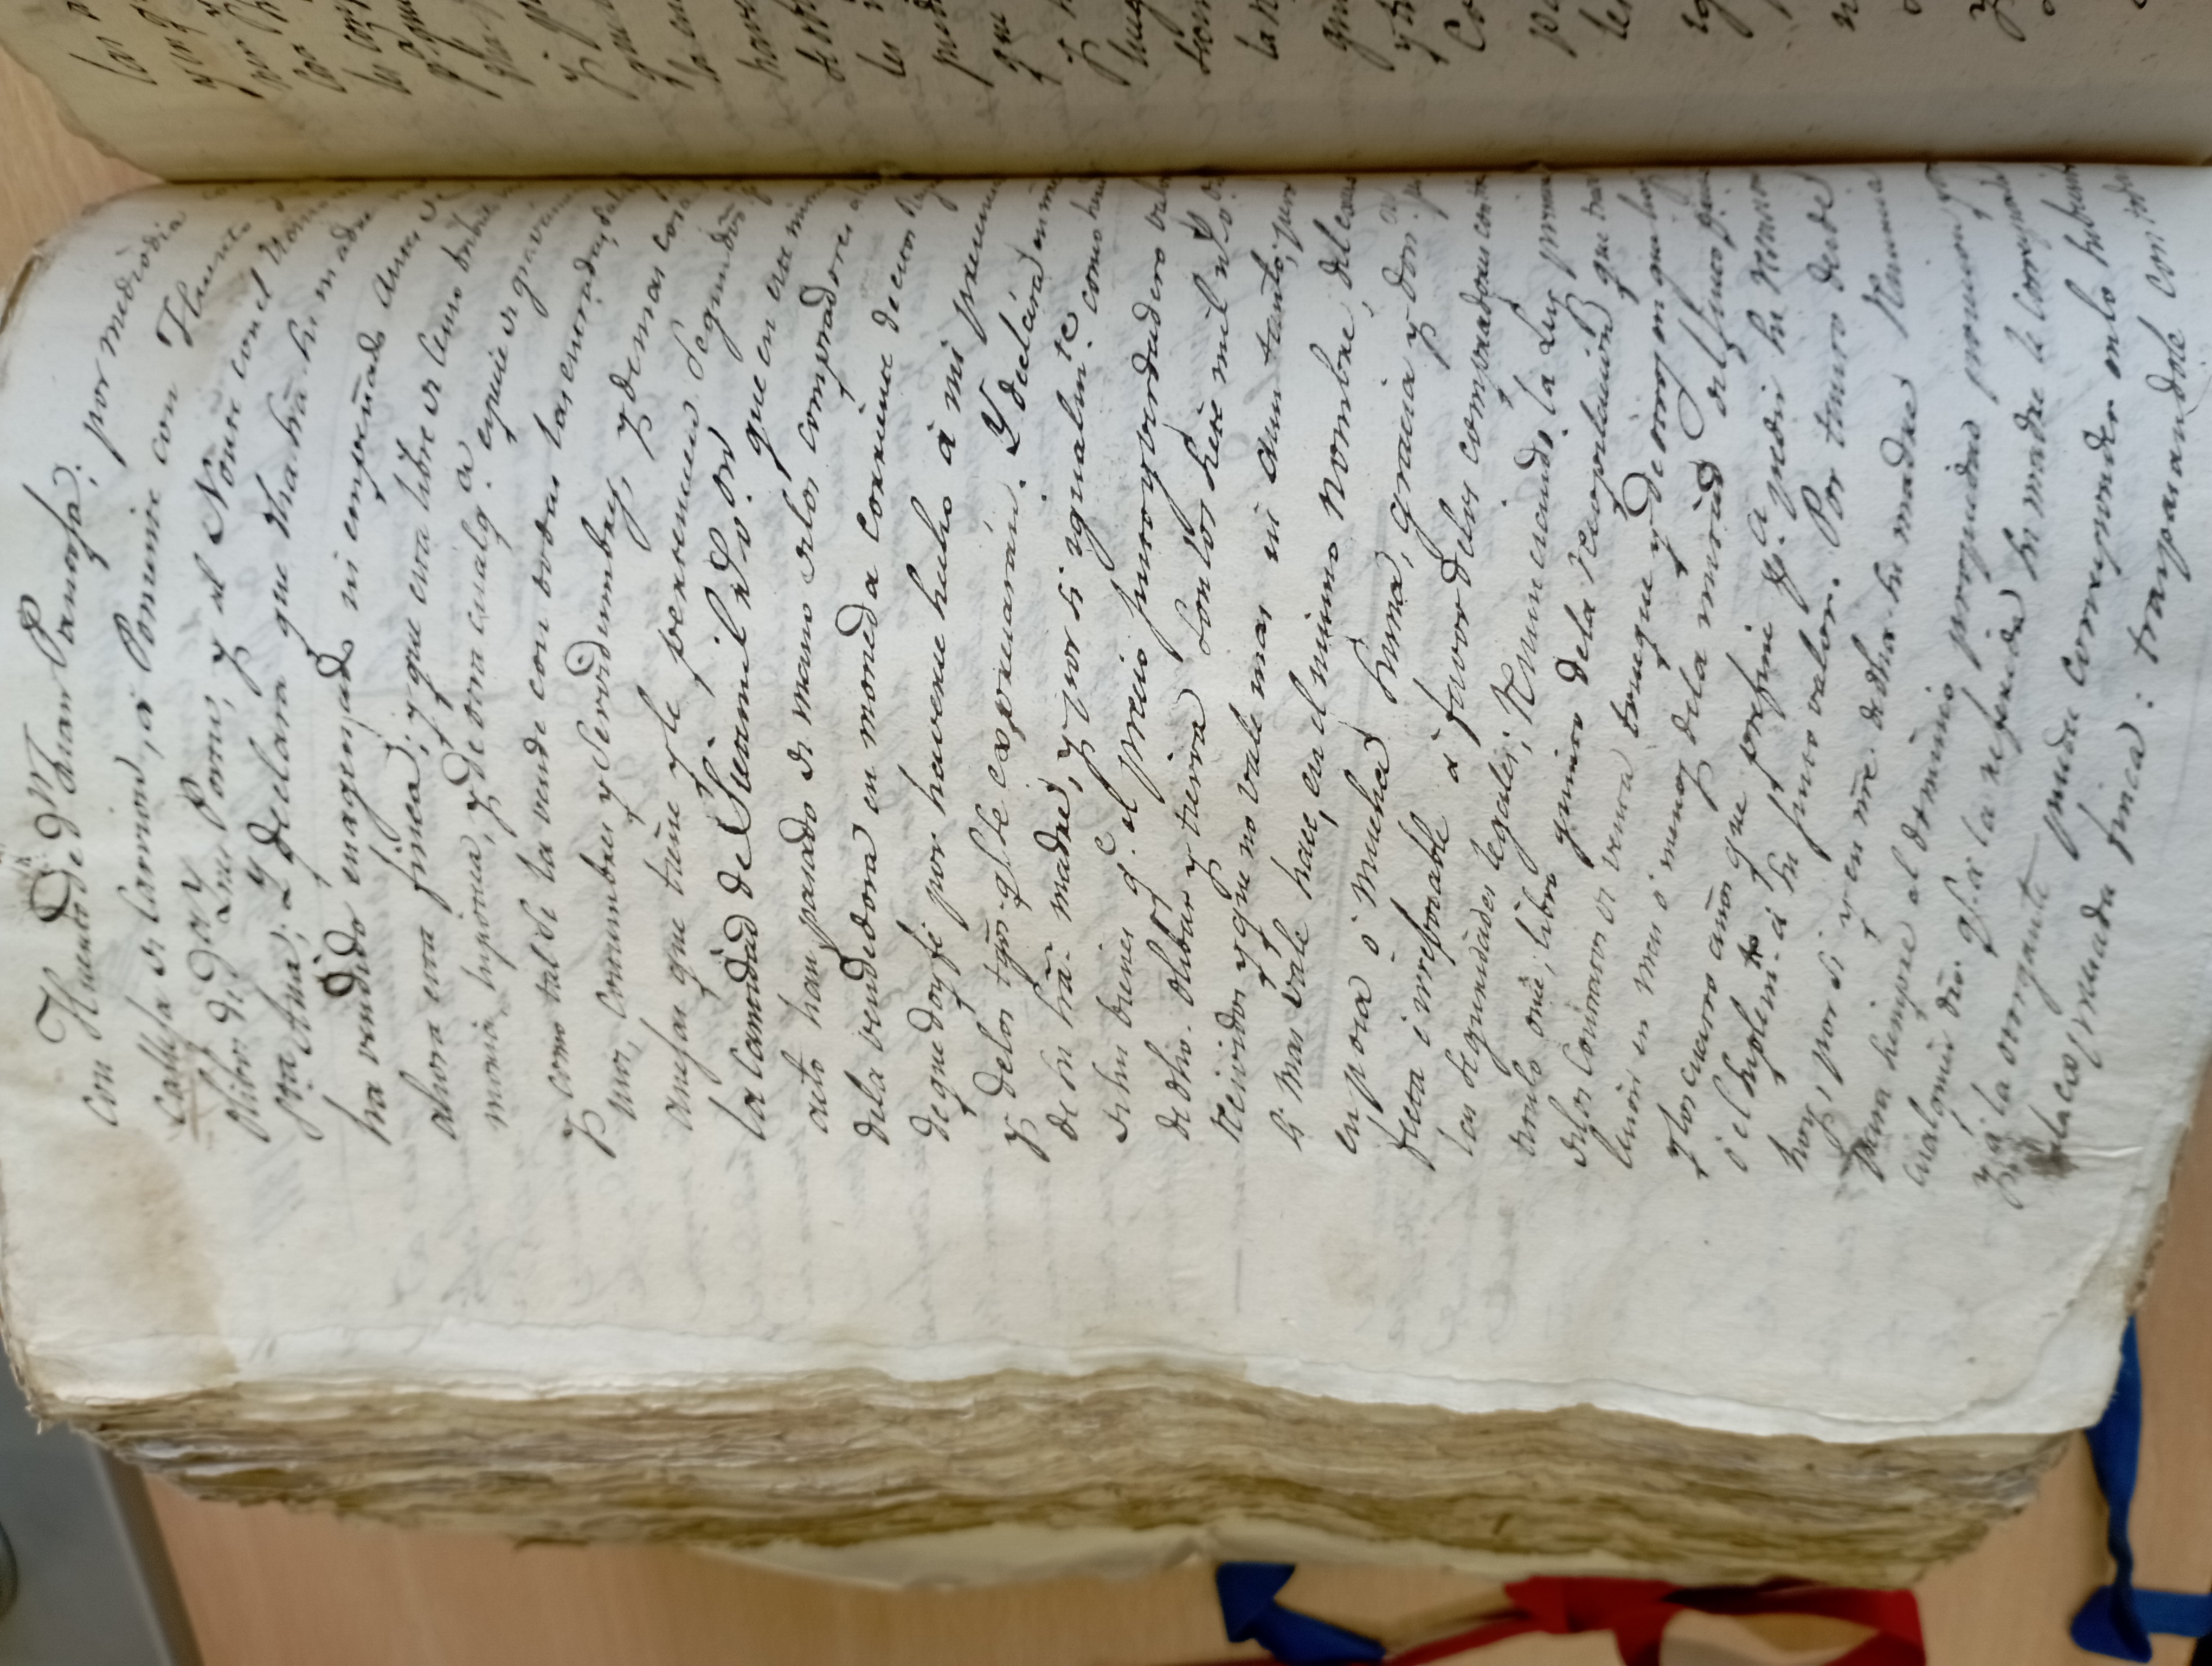 con Huerto de Dn Juan Pantoja; por mediodia
calleja de Carrion, á Poniente con Huerto
olibos de Da Ynes Portu, y al Nôrte con el
Sta Ana; Y declara que dha Srã su madre
ha vendido enagenado ni empeñado antes de
ahora esta finca; y que esta libre de Censo tributo
moria, hipoteca, y de otra cualqa. especie de gravamen
y como tal se la vende con todas las entradas,
usos, costumbres y servidumbres, y demas cosas
anejas que tiene y le pertenecen segun dro
la cantidad de Sietemil rs von. que en este mismo
acto han pasado de mano de los compradores a la
dela vendedora en moneda corriente de estos
de que doy fé por haverse hecho á mi presencia
y delos tgõs. q. se expresarán. Y declára en nre
de su Srã. madre, y por si igualmte. como
de sus bienes qe. el precio justo y verdadero valor
de dho. olibar y tierra son los siete mil rs von.
recividos y que no vale mas ni aun tanto; pero
si mas vale hace, en el mismo nombre, del
en poca ó mucha suma, gracia y don.
fecta é irrebocable á favor delos compradores con
las seguridades legales; Renunciando la Ley primera
titulo once, libro quinto dela recopilacion que trata
delos Contratos de venta trueque y de otros en que hay
lesion en mas ó menos dela mitad del justo
y los cuatro años que prefine pa. pedir su rescision
ó el suplemto. á su justo valor. Por tanto desde
hoy, por si y en nre. de dha su madre Renuncia
para siempre el dominio, propiedad posesion
cualquier dro. q. á la referida su madre le corresponda
y á la otorgante puede corresponder en lo
ala expresada finca: traspasandole con